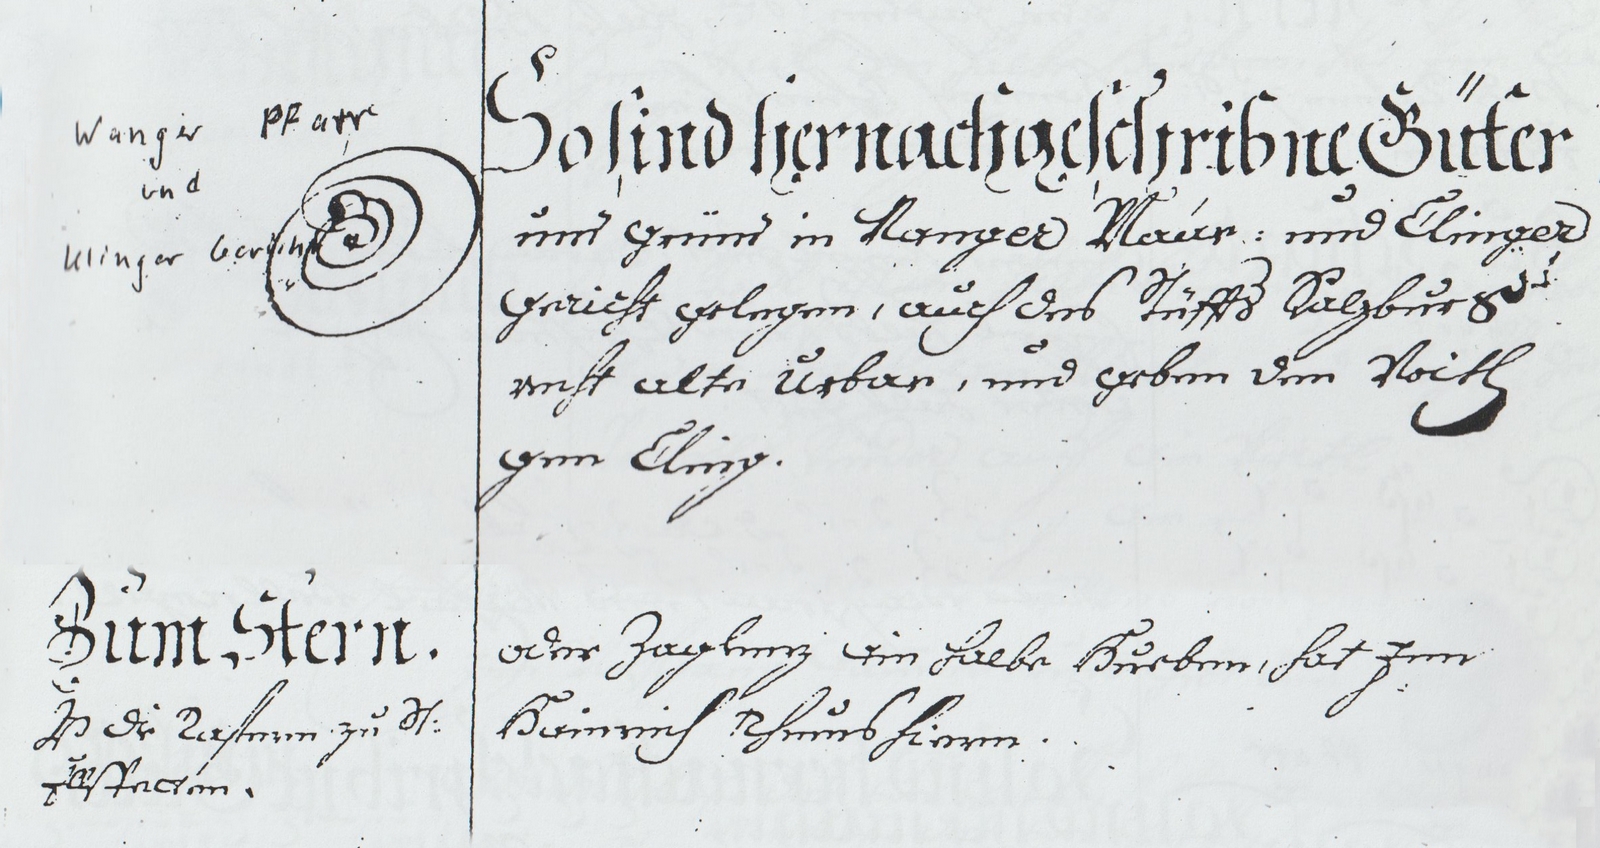 Wanger Pfarr
und
Klinger Gericht
So sind hernachgeschribne Güter
und gründ in Wanger Pfarr: und Clinger
gericht gelegen, auch des Stüffts Salzburg
recht alte Urbar, und geben den Voith
gen Cling.
Zum Stern.
die Tafern zu St:
oder Zaglenz ein halbe Hueben, hat Inn
Hainrich